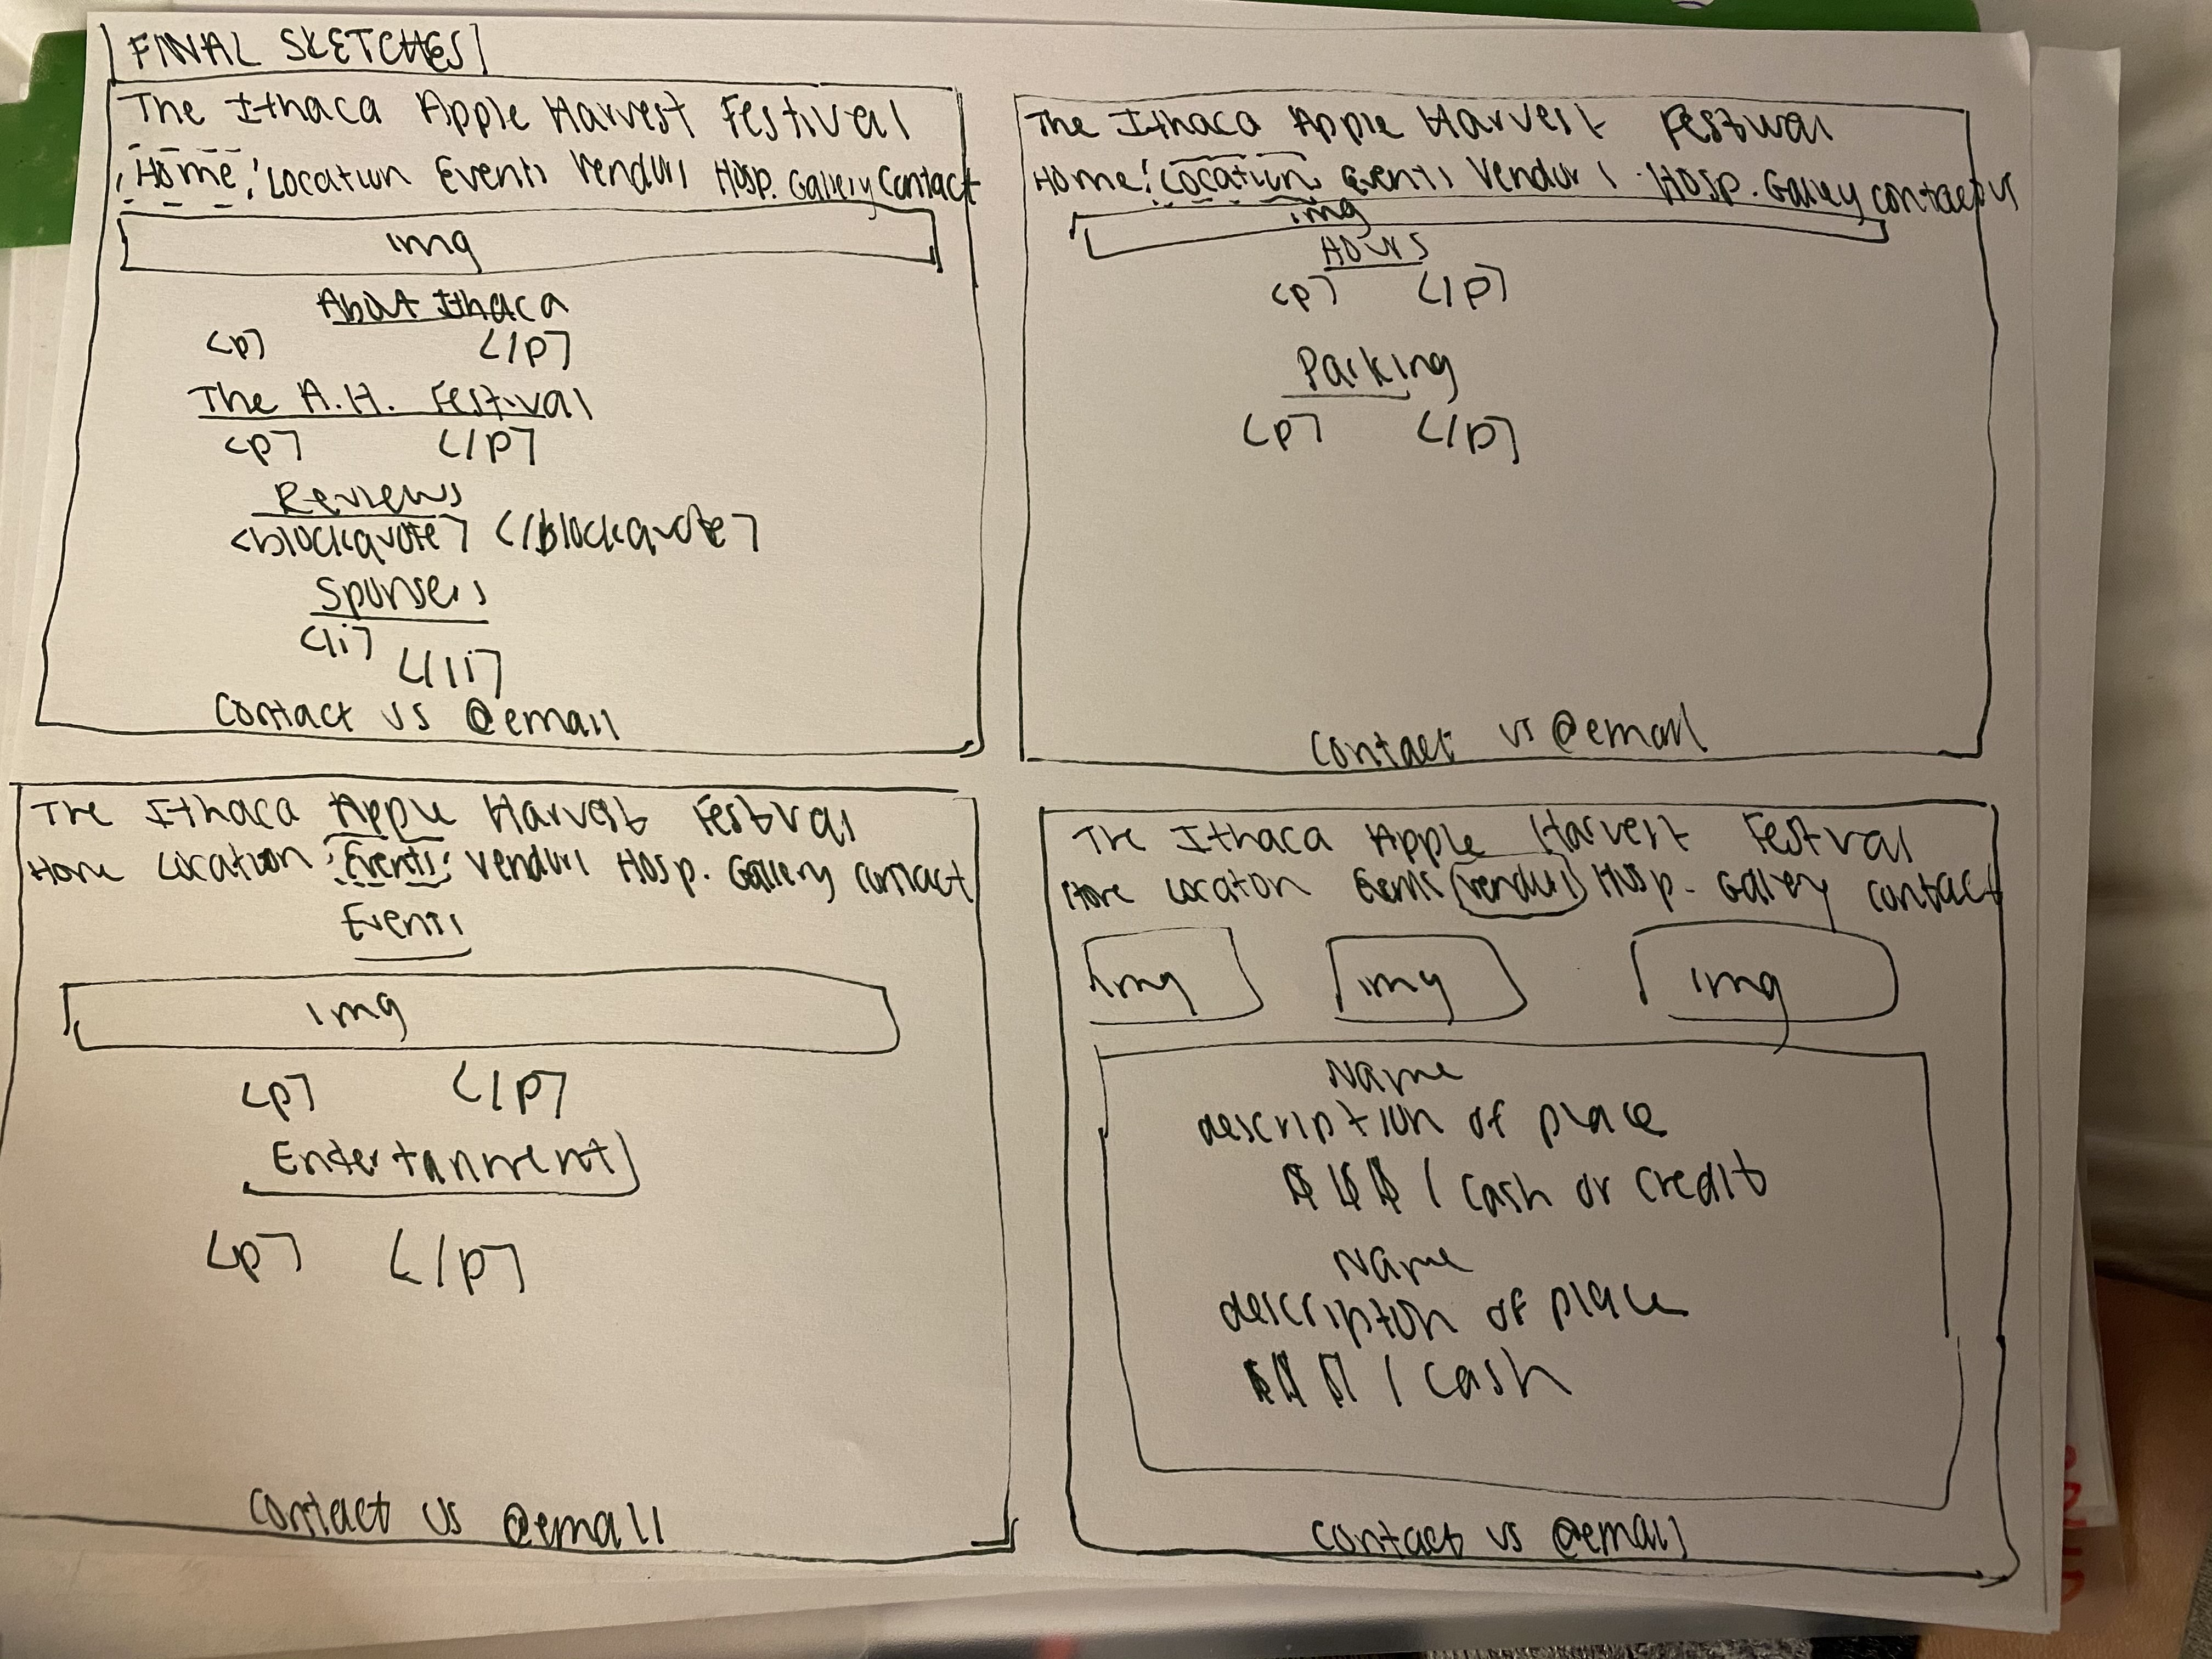 FINAL SKETCHES
The Ithaca Apple Harvest Festival
Home Location Events Vendors Hosp. Gallery Contact
img
About Ithaca
<p> </p>
The A.H. Festival
<p> </p>
Reviews
<blockquote> </blockquote>
Sponsers
<li>
</li>
Contact us @email
The Ithaca Apple Harvest Festival
Home Location Events Vendors Hosp. Gallery contact us
img
Hours
<p> </p>
Parking
<p> </p>
Contact us @email
The Ithaca Apple Harvest Festival
Home Location Events Vendors Hosp. Gallery contact
Events
img
<p> </p>
Entertainment
<p> </p>
Contact us @email
The Ithaca Apple Harvest Festival
Home Location Events Vendors Hosp. Gallery contact
img img img
Name
description of place
$$$ / cash or credit
Name
description of place
$$$ / cash
contact us @email